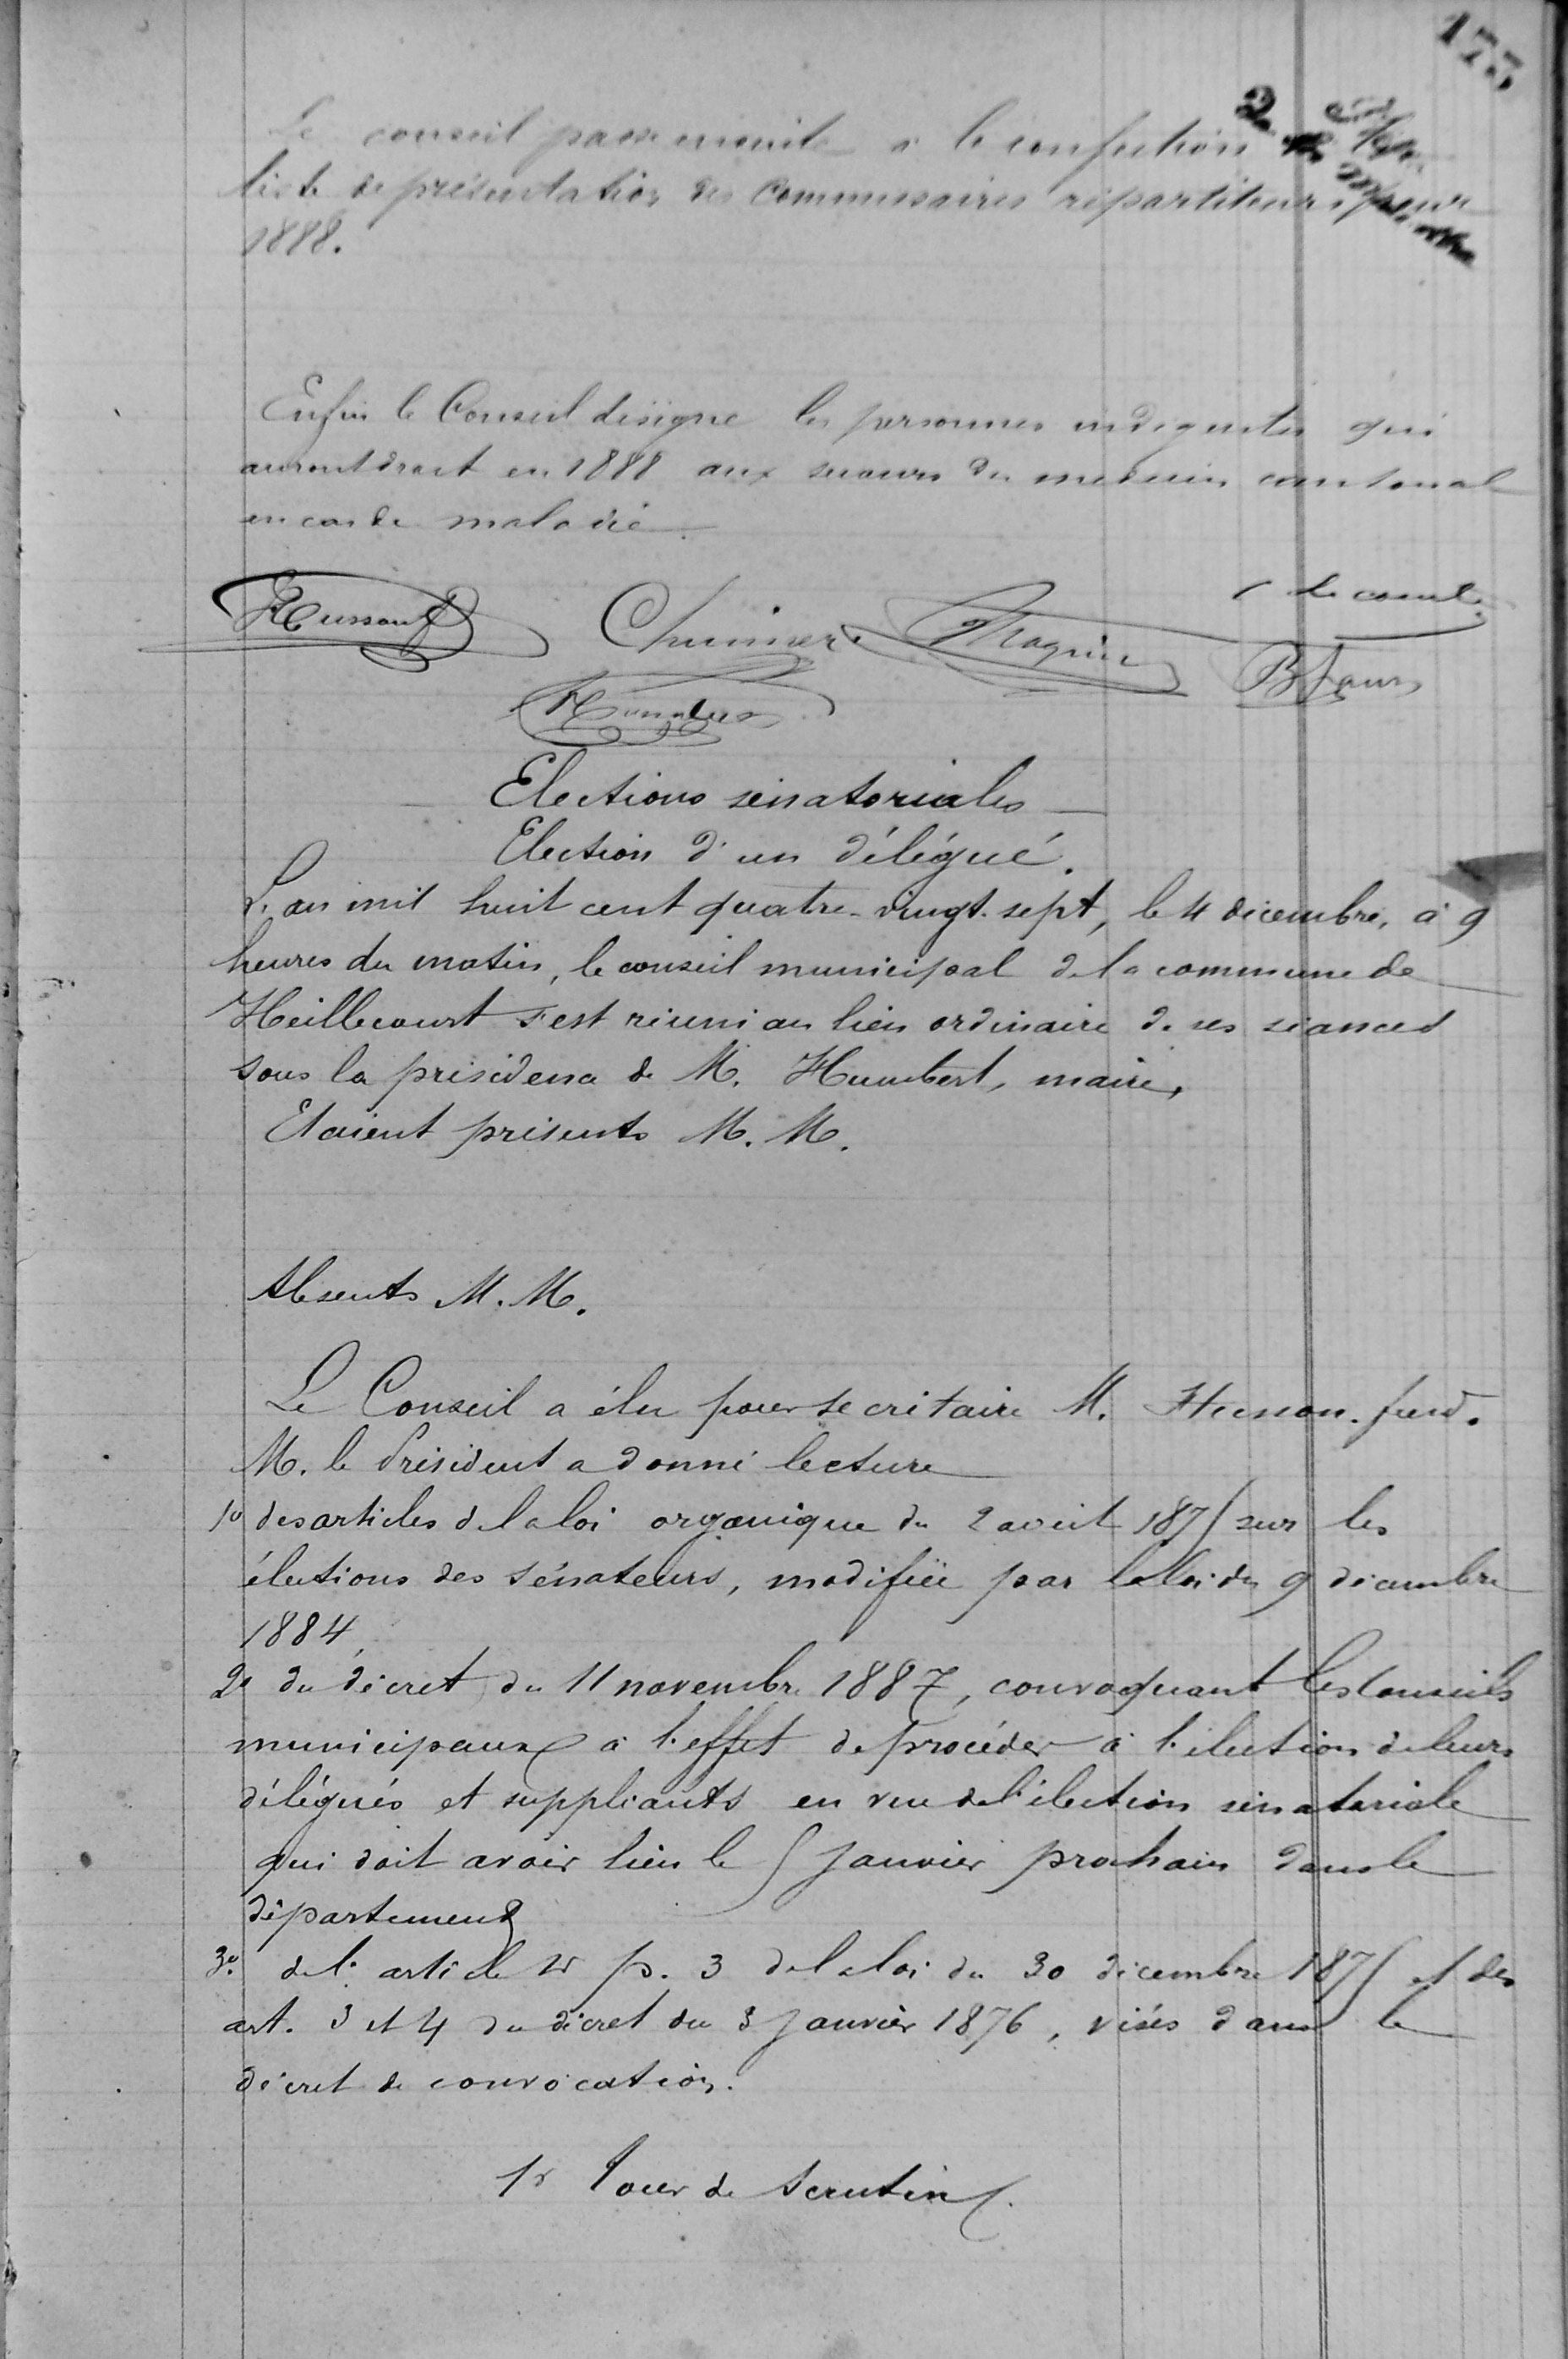 175
Le conseil passe ensuite à la confection de la
liste de présentation des commissaires répartiteurs pour
1888.
Enfin le Conseil désigne les personnes indigentes qui
auront droit en 1888 aux secours du medecin cantonal
en cas de maladie.
Elections sénatoriales
Election d'un délégué.
L'an mil huit cent quatre-vingt-sept, le 4 décembre, à 9
heures du matin, le conseil municipal de la commune de
Heillecourt s'est réuni au lieu ordinaire de ses séances
sous la présidence de M. Humbert, maire,
Etaient présents M. M.
Absents M. M.
Le Conseil a élu pour secrétaire M. Husson. ferd.
M. le Président a donné lecture
1º des articles de la loi organique du 2 août 1875 sur les
élections des sénateurs, modifiée par la loi du 9 décembre
1884,
2º du décret du 11 novembre 1887, convoquant les conseils
municipaux à l'effet de procéder à l'élection de leurs
délégués et suppléants en vue de l'élection sénatoriale
qui doit avoir lieu le 5 Janvier prochain dans le
département
3º. de l'article 1er p. 3 de la loi du 30 décembre 1875 et des
art. 3 et 4 du décret du 3 Janvier 1876, visés dans le
décret de convocation.
1r Tour de Scrutin.